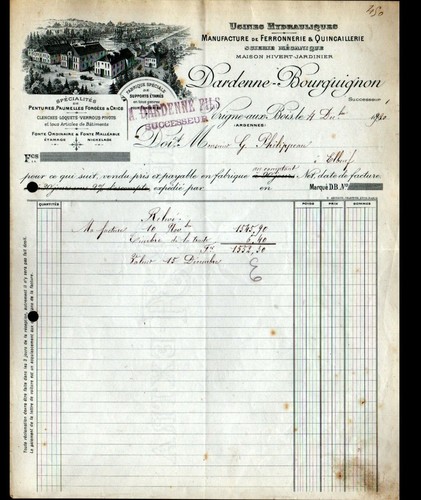 450
USINES HYDRAULIQUES
MANUFACTURE DE FERRONNERIE & QUINCAILLERIE
SCIERIE MÉCANIQUE
MAISON HIVERT-JARDINIER
Dardenne-Bourguignon
SUCCESSEUR
SPÉCIALITÉS
DE
PENTURES, PAUMELLES FORGÉES & CHICS
CLENCHES LOQUETS VERROUS PIVOTS
et tous articles de Bâtiments
FONTE ORDINAIRE & FONTE MALLÉABLE
ÉTAMAGE NICKELAGE
FABRIQUE SPÉCIALE
DE
SUPPORTS ÉTAMÉS
en tous genres
A. DARDENNE FILS
SUCCESSEUR
Vrigne-aux-Bois, le 4 Décbre 1920
(ARDENNES)
Doit Monsieur G. Philippeau
à Elbeuf
Fcs
pour ce qui suit, vendu pris et payable en fabrique au comptant Net, date de facture
expédié par en Marqué D.B. No
QUANTITÉS POIDS PRIX SOMMES
Relevé
Ma facture 10 Novbre 1545,90
Timbre de la traite 6,40
Fcs 1552,30
Valeur 15 Décembre
Toute réclamation devra être faite dans les 3 jours de la réception, autrement il n'y sera pas fait droit.
Le paiement de la lettre de voiture est un acquiescement aux conditions de la facture.